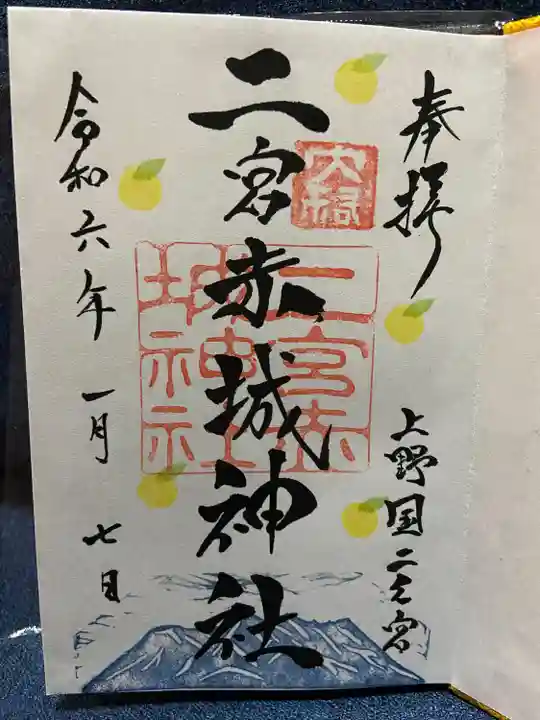 奉拝
上野国二之宮
二宮赤城神社
二宮赤
城神社
令和六年一月七日